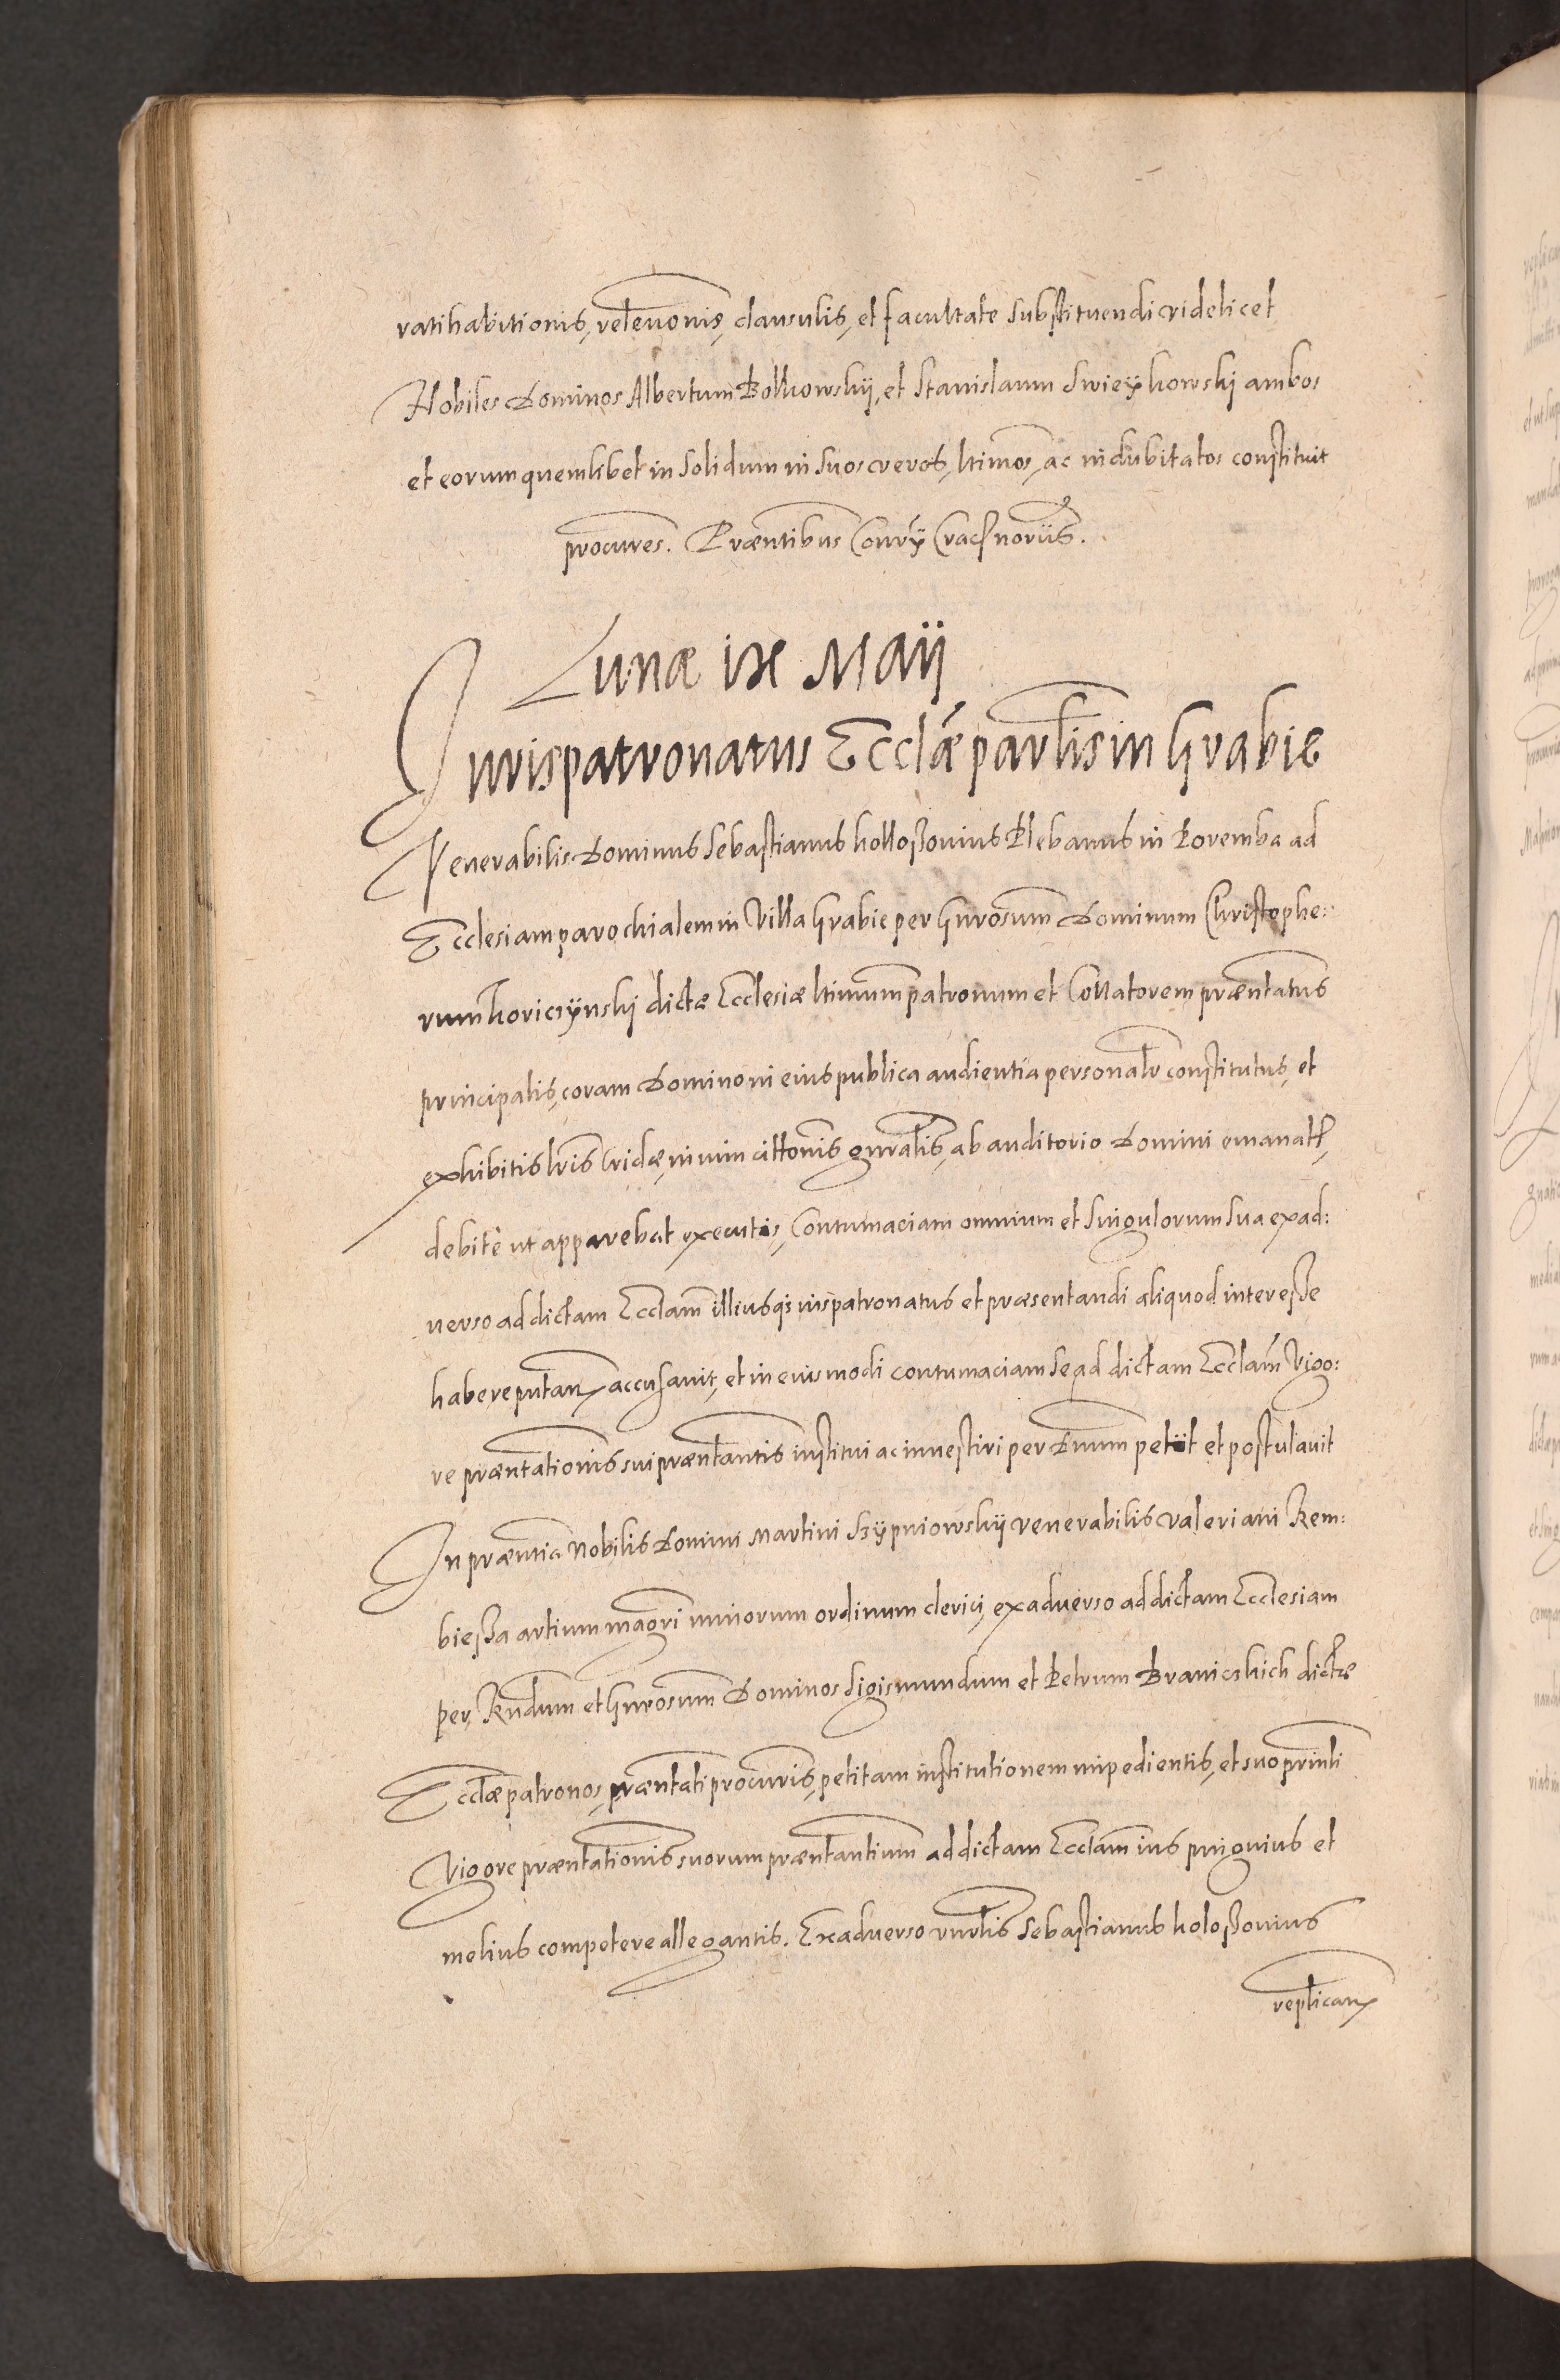 ratihabitionis, relevonis, clausulis, et facultate substituendi videlicet
Nobiles Dominos Albertum Bolkowskij, et Stanislaum Swieykowskj ambos
et eorum quemlibet in solidum in suos veros, ltimos, ac indubitatos constituit
procures. Præntibus
Lunæ ix Maij
Jurispatronatus Ecclæ parlis in Grabie
Venerabilis Dominus Sebastianus kolloßovius Plebanus in Poremba ad
Ecclesiam parochialem in Villa Grabie per Gnrosum Dominum Christophe:
rum Koriczynskj dictæ Ecclesiæ ltimum patronum et Collatorem præntatus
principalis, coram Domino in eius publica audientia personalr constitutus, et
exhibitis lris Cridæ, in vim cittonis gnralis, ab auditorio Domini emanatis,
debite ut apparebat executis, Contumaciam omnium et singulorum sua exad:
verso ad dictam Ecclam illiusq; iuspatronatus et præsentandi aliquod interesse
habere putan accusavit, et in eiusmodi contumaciam se ad dictam Ecclam Vigo:
re præntationis sui præntantis institui ac investiri per Dnum petiit et postulavit
In præntia Nobilis Domini Martini Szypniowskij venerabilis Valeriani Rem:
bießa artium magri minorum ordinum clerici, exadverso ad dictam Ecclesiam
per Rndum et Gnrosum Dominos Sigismundum et Petrum Branicskich dictæ
Ecclæ patronos, præntati procuris, petitam institutionem impedientis, et suo prinli
Vigore præntationis suorum præntantium ad dictam Ecclam ius pinguius et
melius competere allegantis. Exadverso vnrlis Sebastianus koloßovius
replican